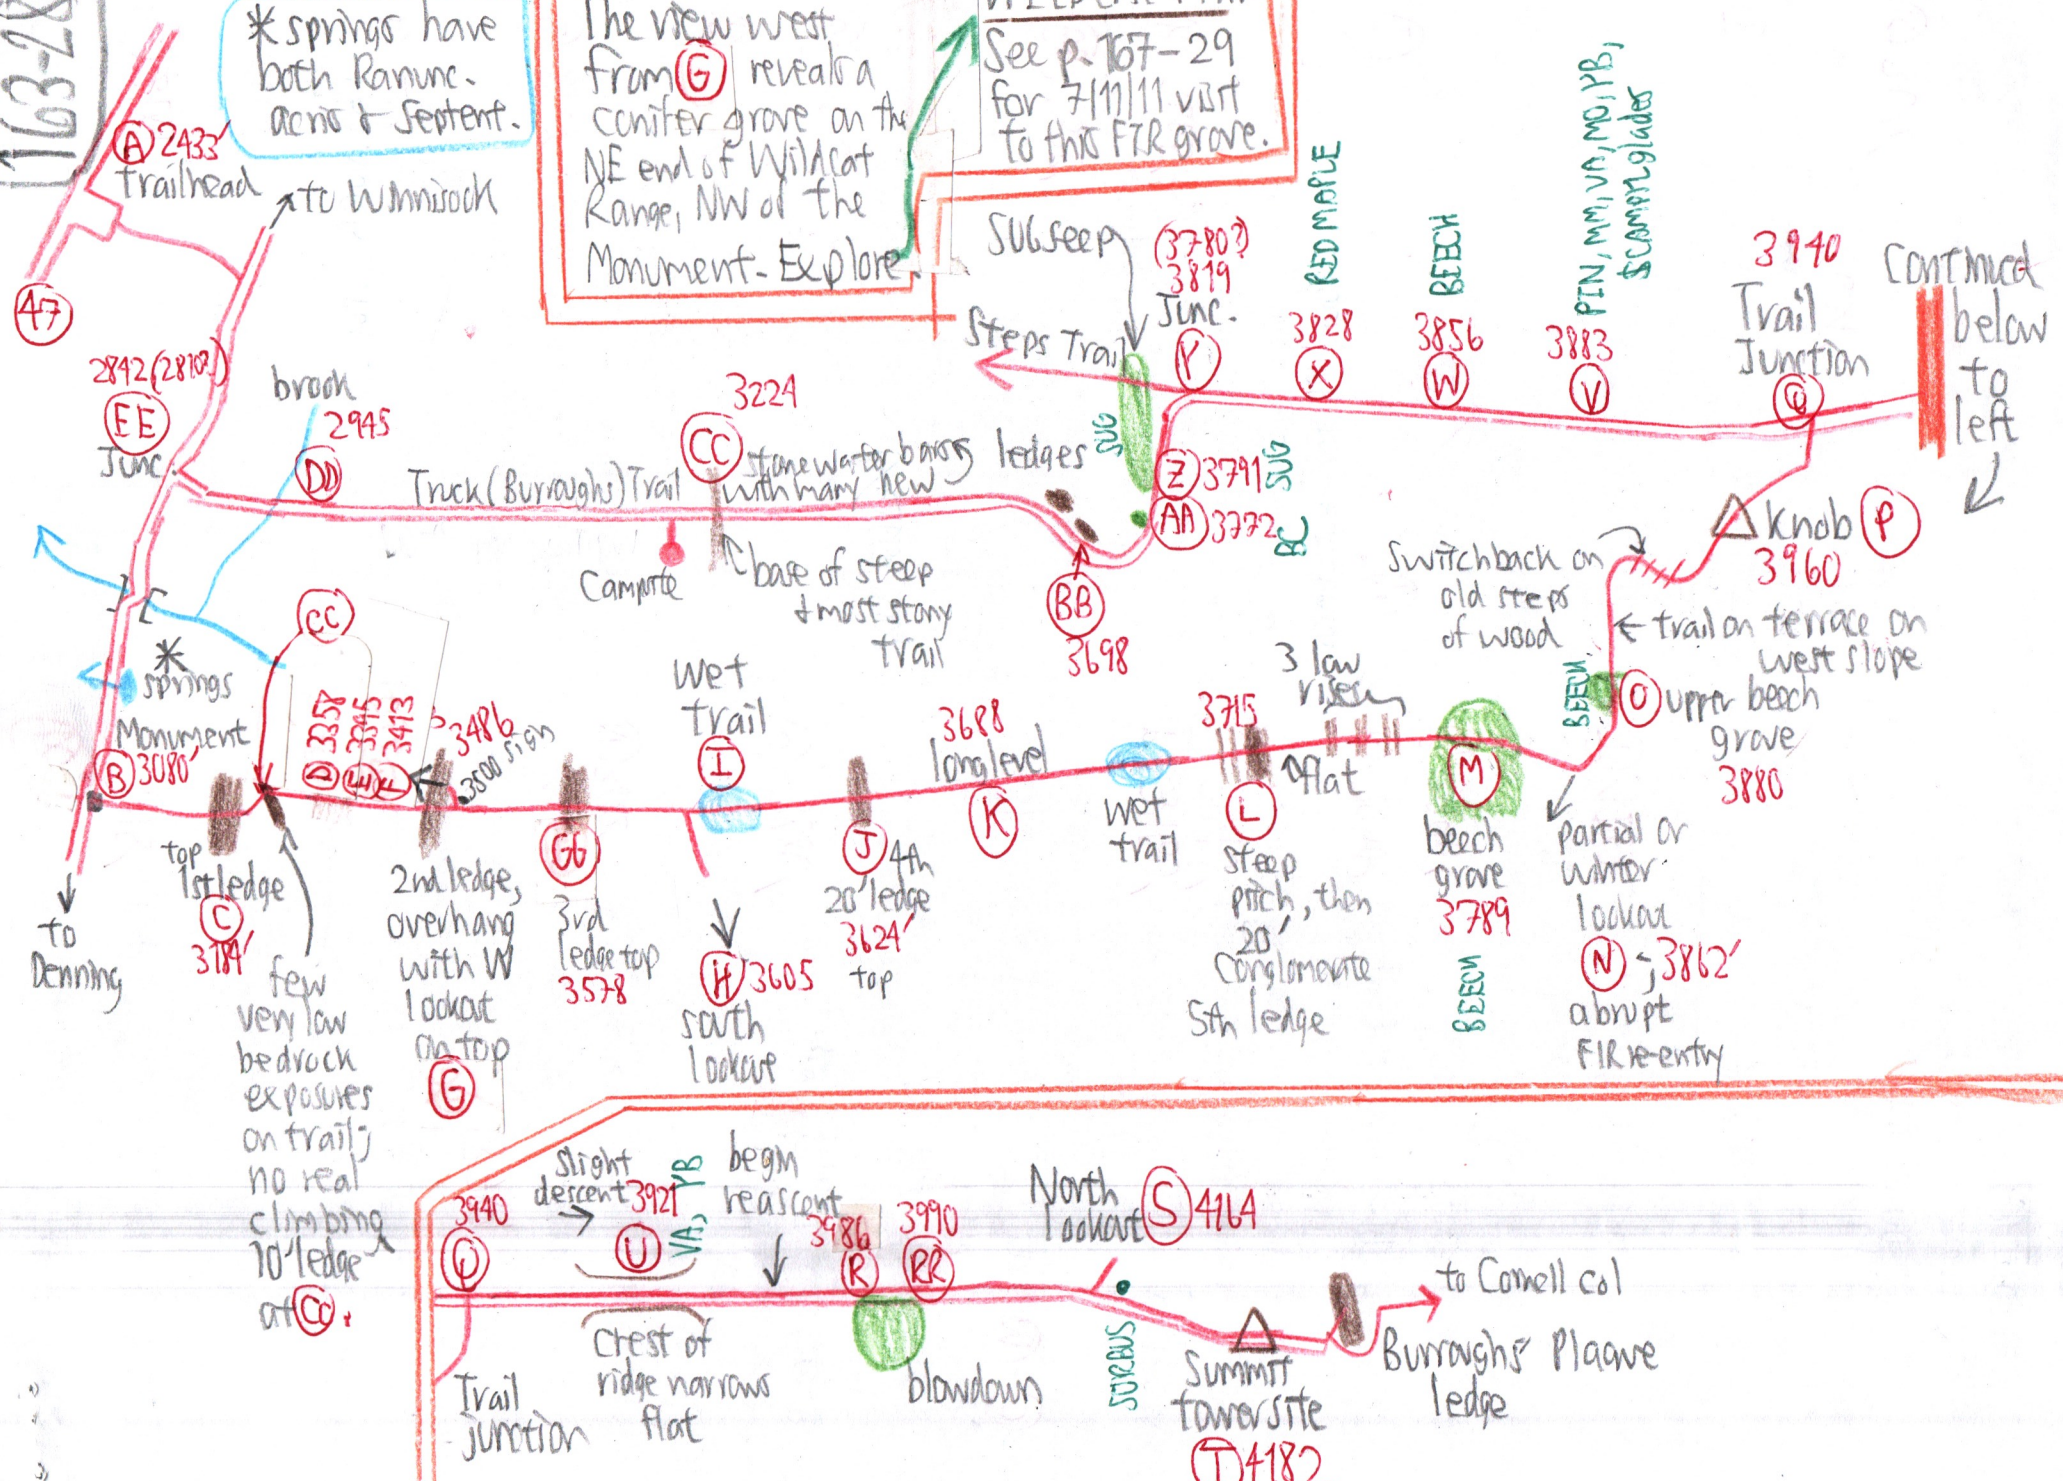 163-28
* springs have
both Ranunc.
acris & Septent.
The view west
from G reveals a
conifer grove on the
NE end of Wildcat
Range, NW of the
Monument - Explore
See p. 167-29
for 7/11/11 visit
to this FIR grove.
A 2433'
trailhead
to Winnisook
47
2842 (2810?)
EE
Junc.
brook
2945
DD
Truck (Burroughs) Trail
3224
CC
stone water bars
with many new
ledges
Campsite
base of steep
& most stony
trail
BB
3698
SUG seep
Steps Trail
SUG
(3780?)
3819
Junc.
Y
Z 3791 SUG
AA 3772 BC
RED MAPLE
3828
X
BEECH
3856
W
PIN, MM, VA, MO, YB,
3883
V
3940
Trail
Junction
Q
Continued
below
to
left
Knob P
3960
Switchback on
old steps
of wood
trail on terrace on
west slope
BEECH
O upper beech
grove
3880
*
springs
Monument
B 3080'
to
Denning
CC
D 3358
E 3395
F 3413
3486
3500 sign
top
1st ledge
C
3184'
few
very low
bedrock
exposures
on trail;
no real
climbing
10' ledge
at CC.
2nd ledge,
overhang
with W
lookout
on top
G
GG
3rd
ledge top
3578
wet
trail
I
H 3605
south
lookout
J 4th
20' ledge
3624'
top
3688
long level
K
wet
trail
3715
L
steep
pitch, then
20'
Conglomerate
5th ledge
3 low
rises
flat
M
beech
grove
3789
BEECH
partial or
winter
lookout
N ; 3862'
abrupt
FIR re-entry
3940
Q
Trail
junction
slight
descent 3921
U
VA, YB
Crest of
ridge narrows
flat
begin
reascent
3986
R
3990
RR
blowdown
North
lookout S 4164
SORBUS
Summit
tower site
T
to Cornell col
Burroughs Plaque
ledge